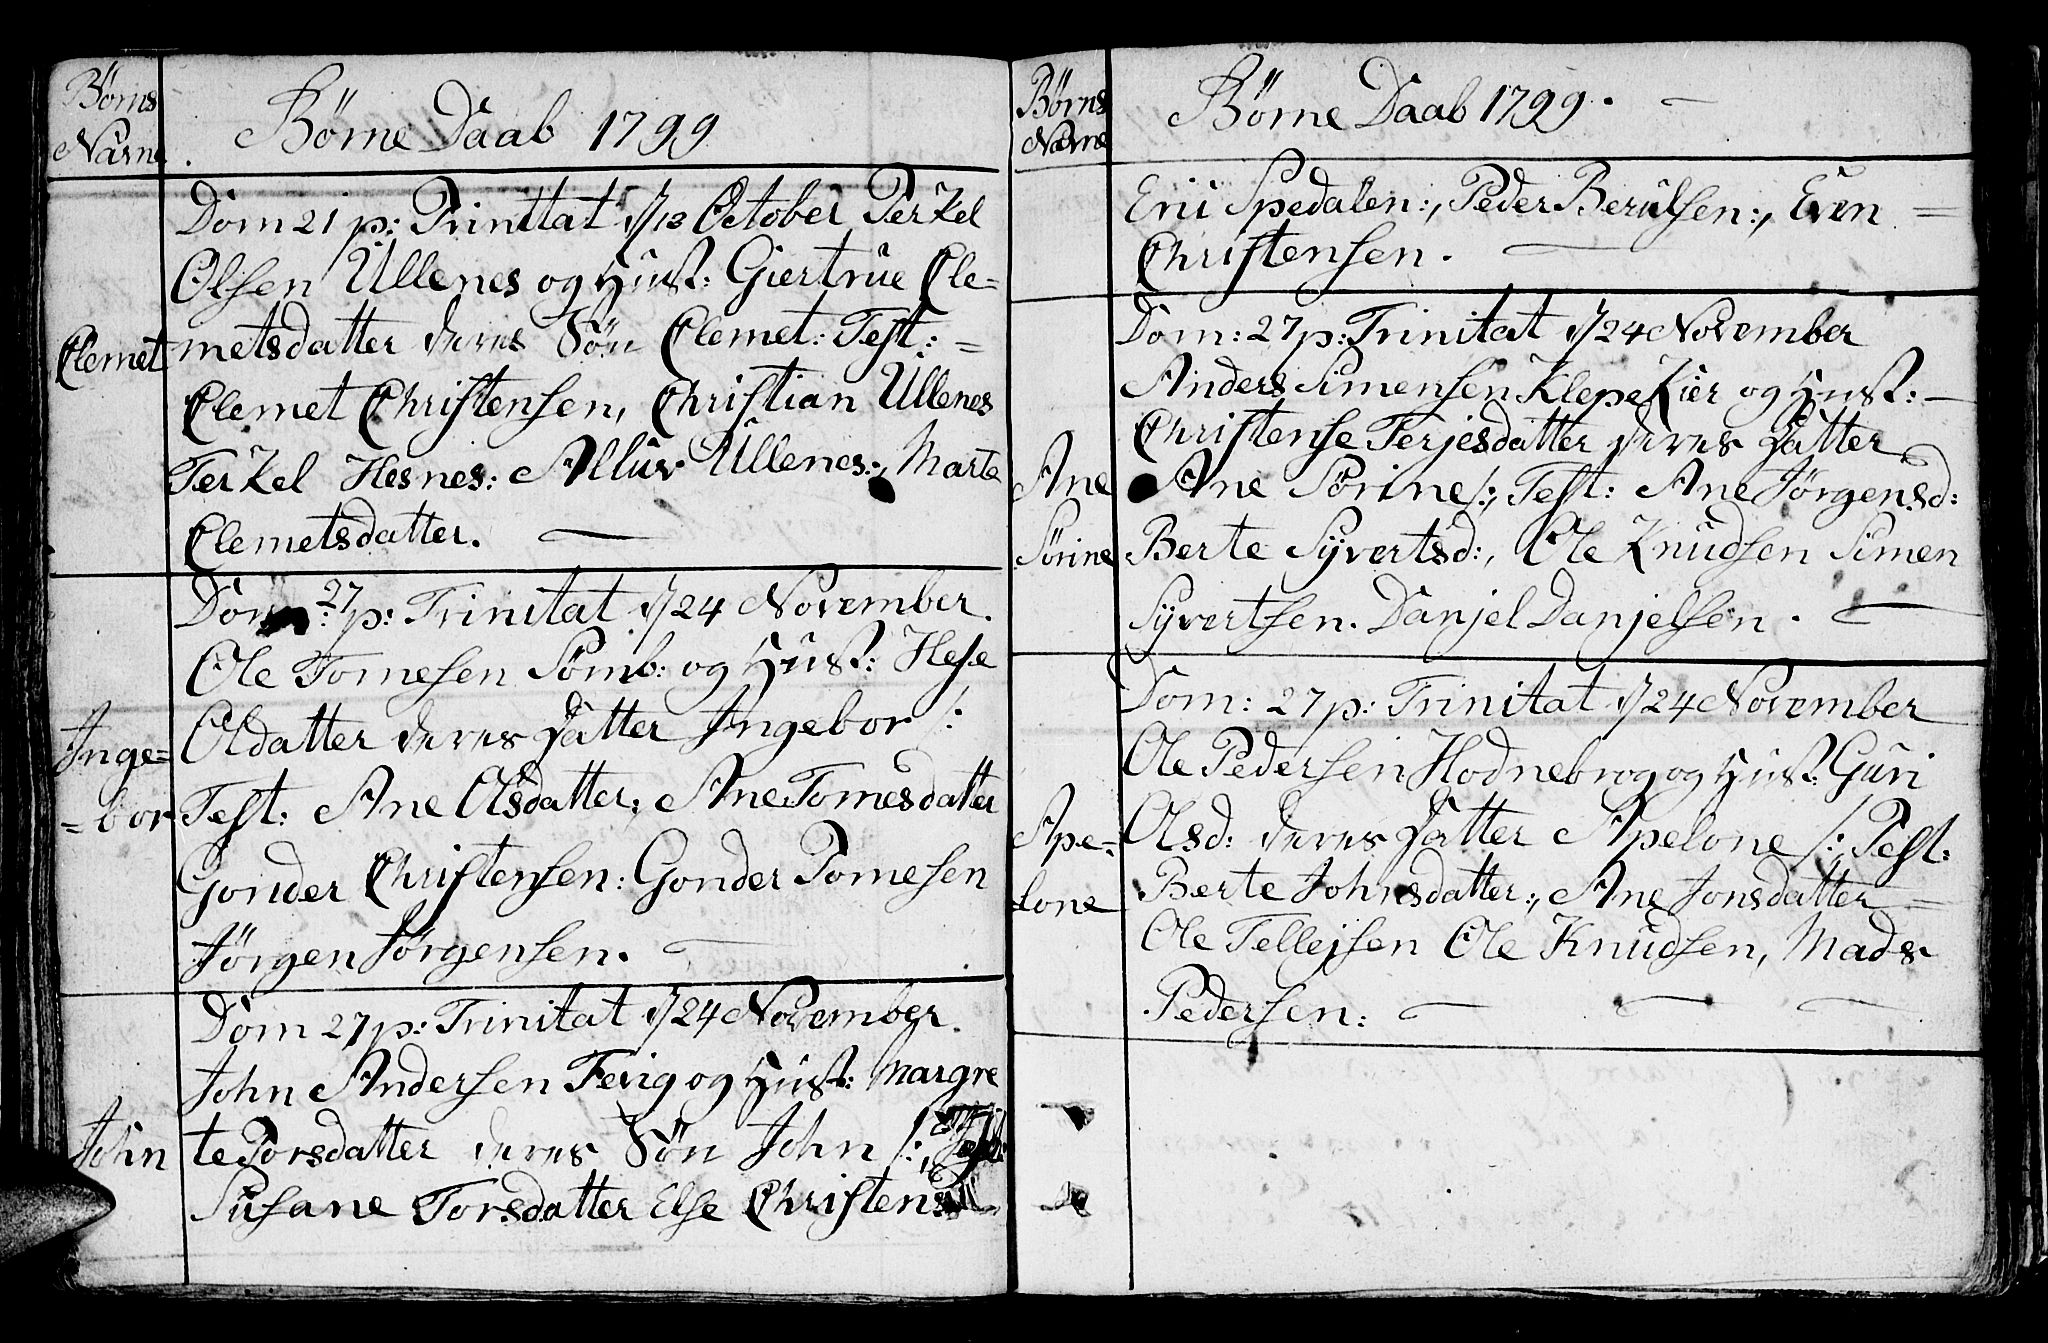 Børns
Navne
Børne Daab 1799
Dom 21 p: Trinitat d/13 October Terkel
Olsen Ullenes og Hust: Giertrue Cle-
Clemet
metsdatter deres Søn Clemet: Test: =
Clemet Christensen, Christian Ullenes
Terkel Hesnes: Ullenes:, Marte
Clemetsdatter.
Dom: 27 p: Trinitat d/24 November.
Ole Tomesen Sømb: og Hust: Hese
Inge=
=bor
Oldatter deres Datter Ingebor /:
Test: Ane Olsdatter; Ane Tomesdatter
Gonder Christensen: Gonder Tomesen
Jørgen Jørgensen.
Dom 27 p: Trinitat d/24 November.
John Andersen Fevig og Hust: Margre
John
te Torsdatter deres Søn John /: Test:
Susane Torsdatter Else Christens
Børns
Navne
Børne Daab 1799.
Spedalen:, Peder Berulsen:, Even =
Christensen.
Dom: 27 p: Trinitat d/24 November
Anders Simensen Klepekier og Hust: -
Christense Terjesdatter deres Datter
Ane
Sørine
Ane Sørine /:, Test: Ane Jørgensd:
Berte Syvertsd:, Ole Knudsen Simen
Syvertsen. Danjel Danjelsen.
Dom: 27 p: Trinitat d/24 November
Ole Pedersen Hodnebrog og Hust: Guri
Ape=
lone
Olsd: deres Datter Apelone /: Test:
Berte Johnsdatter:, Ane Jonsdatter =
Ole Tellejsen Ole Knudsen, Mads
Pedersen: